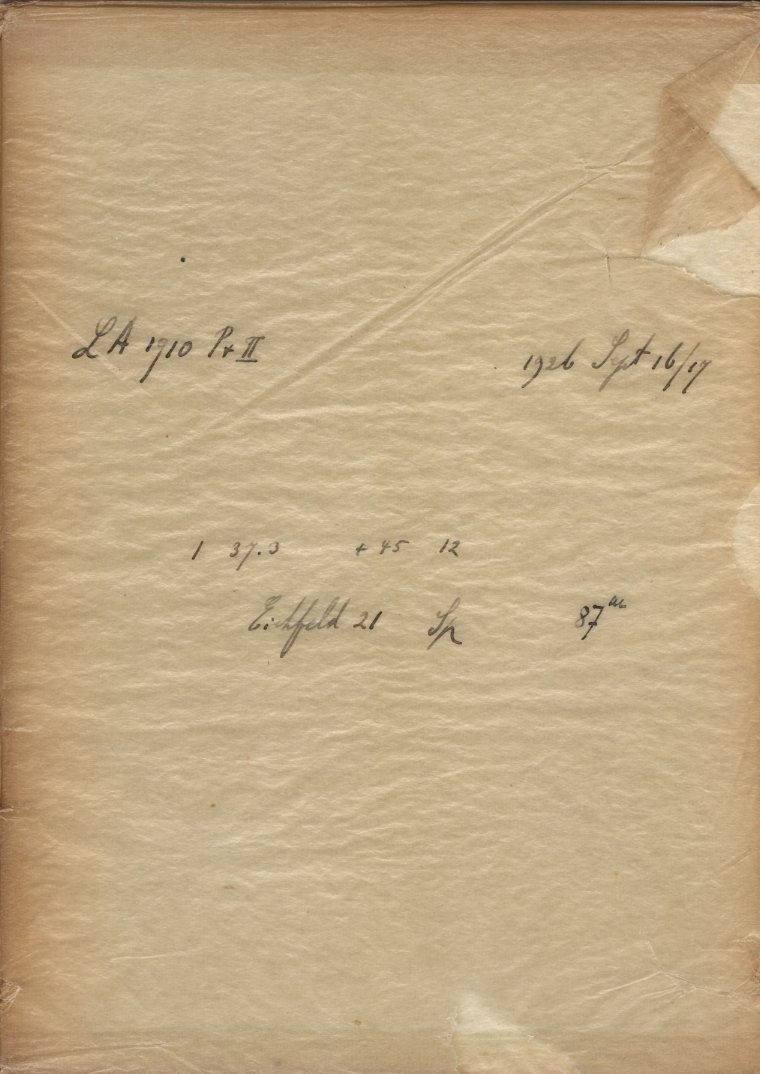 LA 1910 Pr II 1926 Sept 16/17
1 37.3 +45 12
Eichfeld 21 Sp 87